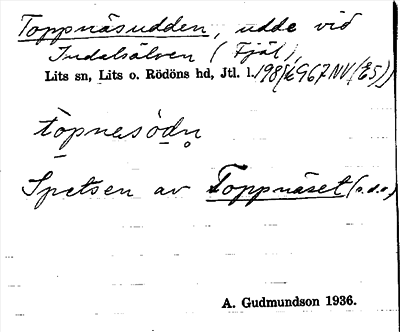 Toppnäsudden, udde vid
Indalsälven (Fjäl),
Lits sn, Lits o. Rödöns hd, Jtl. l.
tòpnesödn̥
Spetsen av Toppnäset (s.d.o.)
A. Gudmundson 1936.